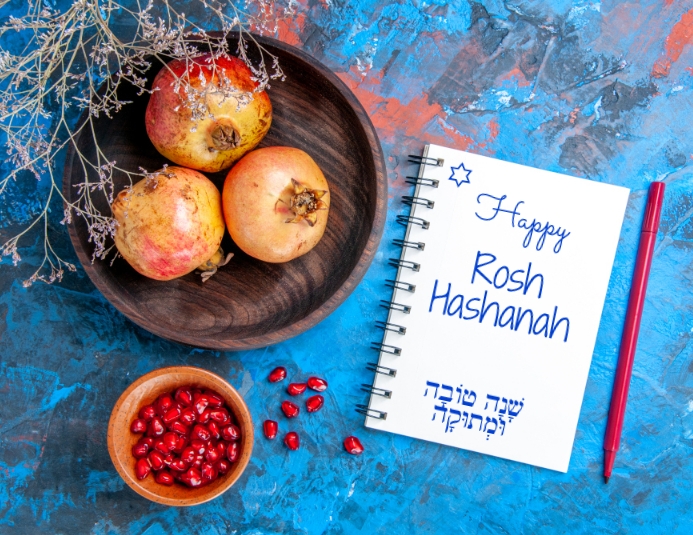 Happy
Rosh
Hashanah
שָׁנָה טוֹבָה
וּמְתוּקָה